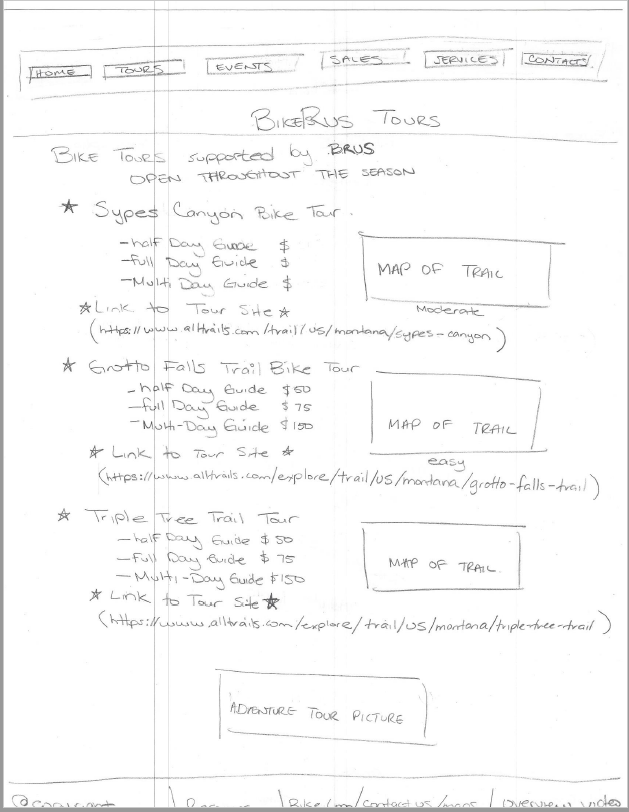 HOME TOURS EVENTS SALES SERVICES CONTACTS
BikeRus Tours
Bike Tours supported by BRUS
OPEN THROUGHOUT THE SEASON
★ Sypes Canyon Bike Tour.
-half Day Guide $
-full Day Guide $
-Multi Day Guide $
MAP OF TRAIL
Moderate
★Link to Tour Site★
(https://www.alltrails.com/trail/us/montana/sypes-canyon)
★ Grotto Falls Trail Bike Tour
-half Day Guide $50
-full Day Guide $75
-Multi-Day Guide $150
MAP OF TRAIL
easy
★ Link to Tour Site ★
(https://www.alltrails.com/explore/trail/us/montana/grotto-falls-trail)
★ Triple Tree Trail Tour
-half Day Guide $50
-Full Day Guide $75
-Multi-Day Guide $150
MAP OF TRAIL
★ Link to Tour Site★
(https://www.alltrails.com/explore/trail/us/montana/triple-tree-trail)
ADVENTURE TOUR PICTURE
@copyright | Bike.com/contact us/maps | Overview video